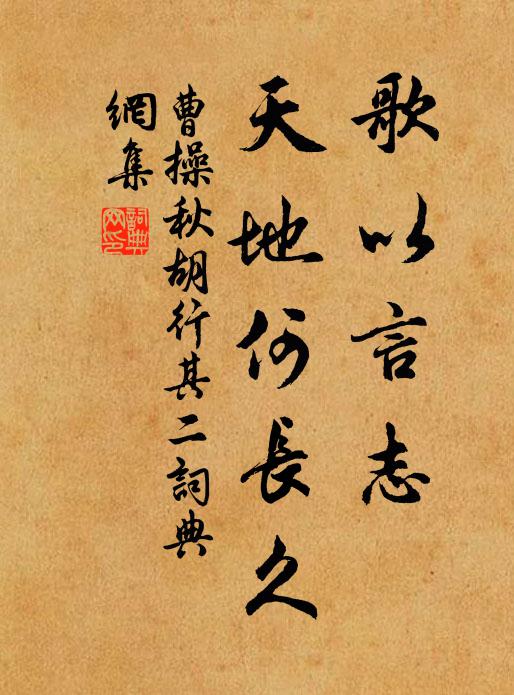 歌以言志
天地何長久
曹操秋胡行其二詞典
網集
詞典
网印